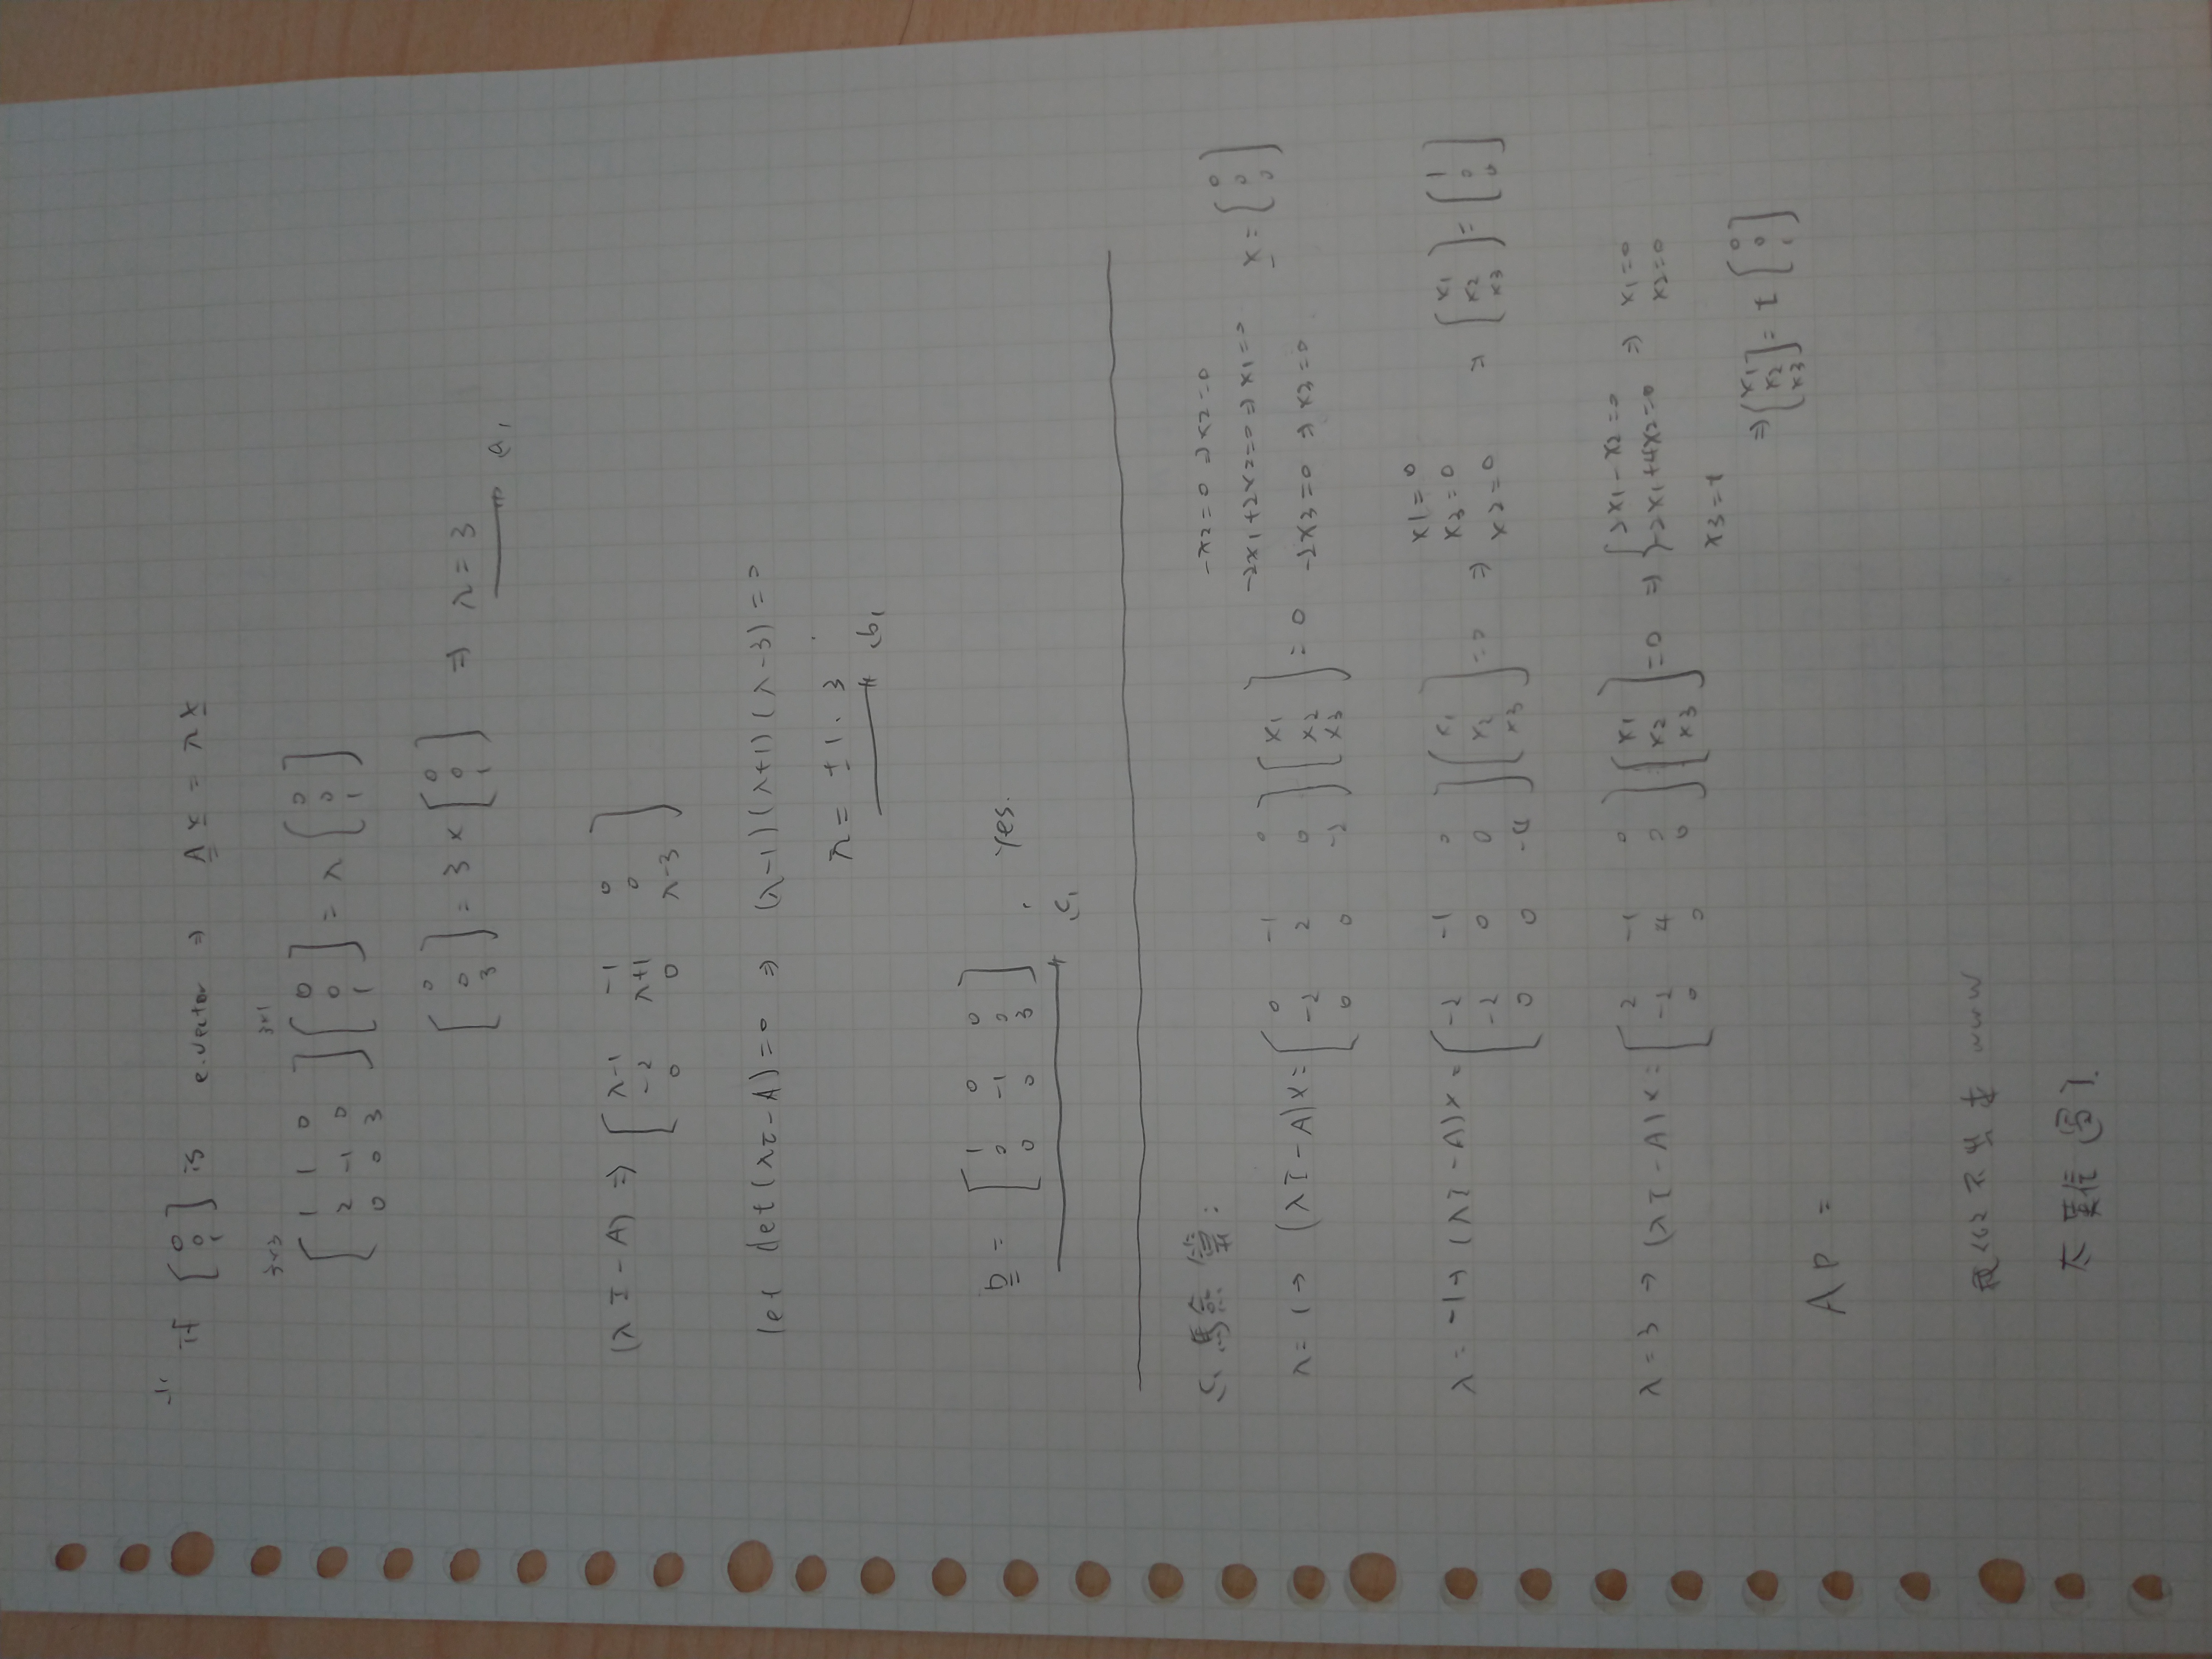 1. if [0 0 1] is e.vector ⇒ A x = λ x
3×3 3×1
[1 1 0; 2 -1 0; 0 0 3] [0 0 1] = λ [0 0 1]
[0 0 3] = 3 × [0 0 1] ⇒ λ = 3 (a)
(λI - A) ⇒ [λ-1 -1 0; -2 λ+1 0; 0 0 λ-3]
let det(λI-A)=0 ⇒ (λ-1)(λ+1)(λ-3)=0
λ = ±1, 3 (b)
D = [1 0 0; 0 -1 0; 0 0 3], Yes. (c)
(c)
λ = 1 → (λI-A)x = [0 -1 0; -2 2 0; 0 0 -2] [x1 x2 x3] = 0
-x2=0 ⇒ x2=0
-2x1+2x2=0 ⇒ x1=0
-2x3=0 ⇒ x3=0
x = [0 0 0]
λ = -1 → (λI-A)x = [-2 -1 0; -2 0 0; 0 0 -4] [x1 x2 x3] = 0 ⇒
x1=0
x3=0
x2=0
⇒ [x1 x2 x3] = [1 0 0]
λ = 3 → (λI-A)x = [2 -1 0; -2 4 0; 0 0 0] [x1 x2 x3] = 0 ⇒
2x1-x2=0
-2x1+4x2=0
⇒ x1=0
x2=0
x3=t
⇒ [x1 x2 x3] = t [0 0 1]
AP =
www